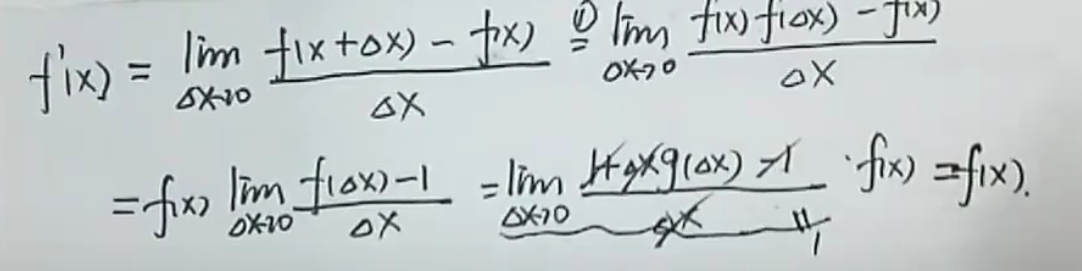 f'(x) = lim Δx→0 f(x+Δx) - f(x) / Δx ① = lim Δx→0 f(x) f(Δx) - f(x) / Δx
= f(x) lim Δx→0 f(Δx) - 1 / Δx = lim Δx→0 1 + Δx g(Δx) - 1 / Δx · f(x) = f(x).
1